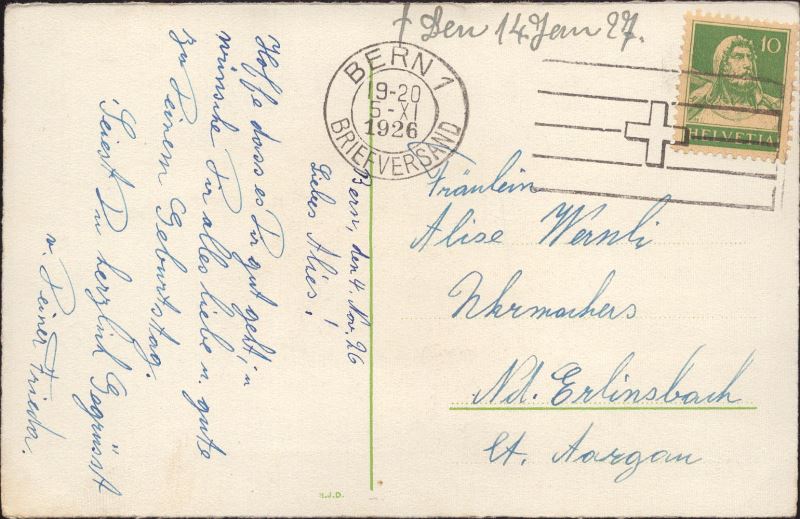 † Den 14. Jan 27.
BERN 1
19-20
5-XI
1926
BRIEFVERSAND
10
HELVETIA
Bern, den 4. Nov. 26
Liebes Alies!
Hoffe dass es Dir gut geht, u
wünsche Dir alles liebe u. gute
zu Deinem Geburtstag.
Seiest Du herzlich Gegrüsst
v. Deiner Frieda.
Fräulein
Alise Wernli
Uhrmachers
Nd. Erlinsbach
Ct. Aargau
H.J.D.